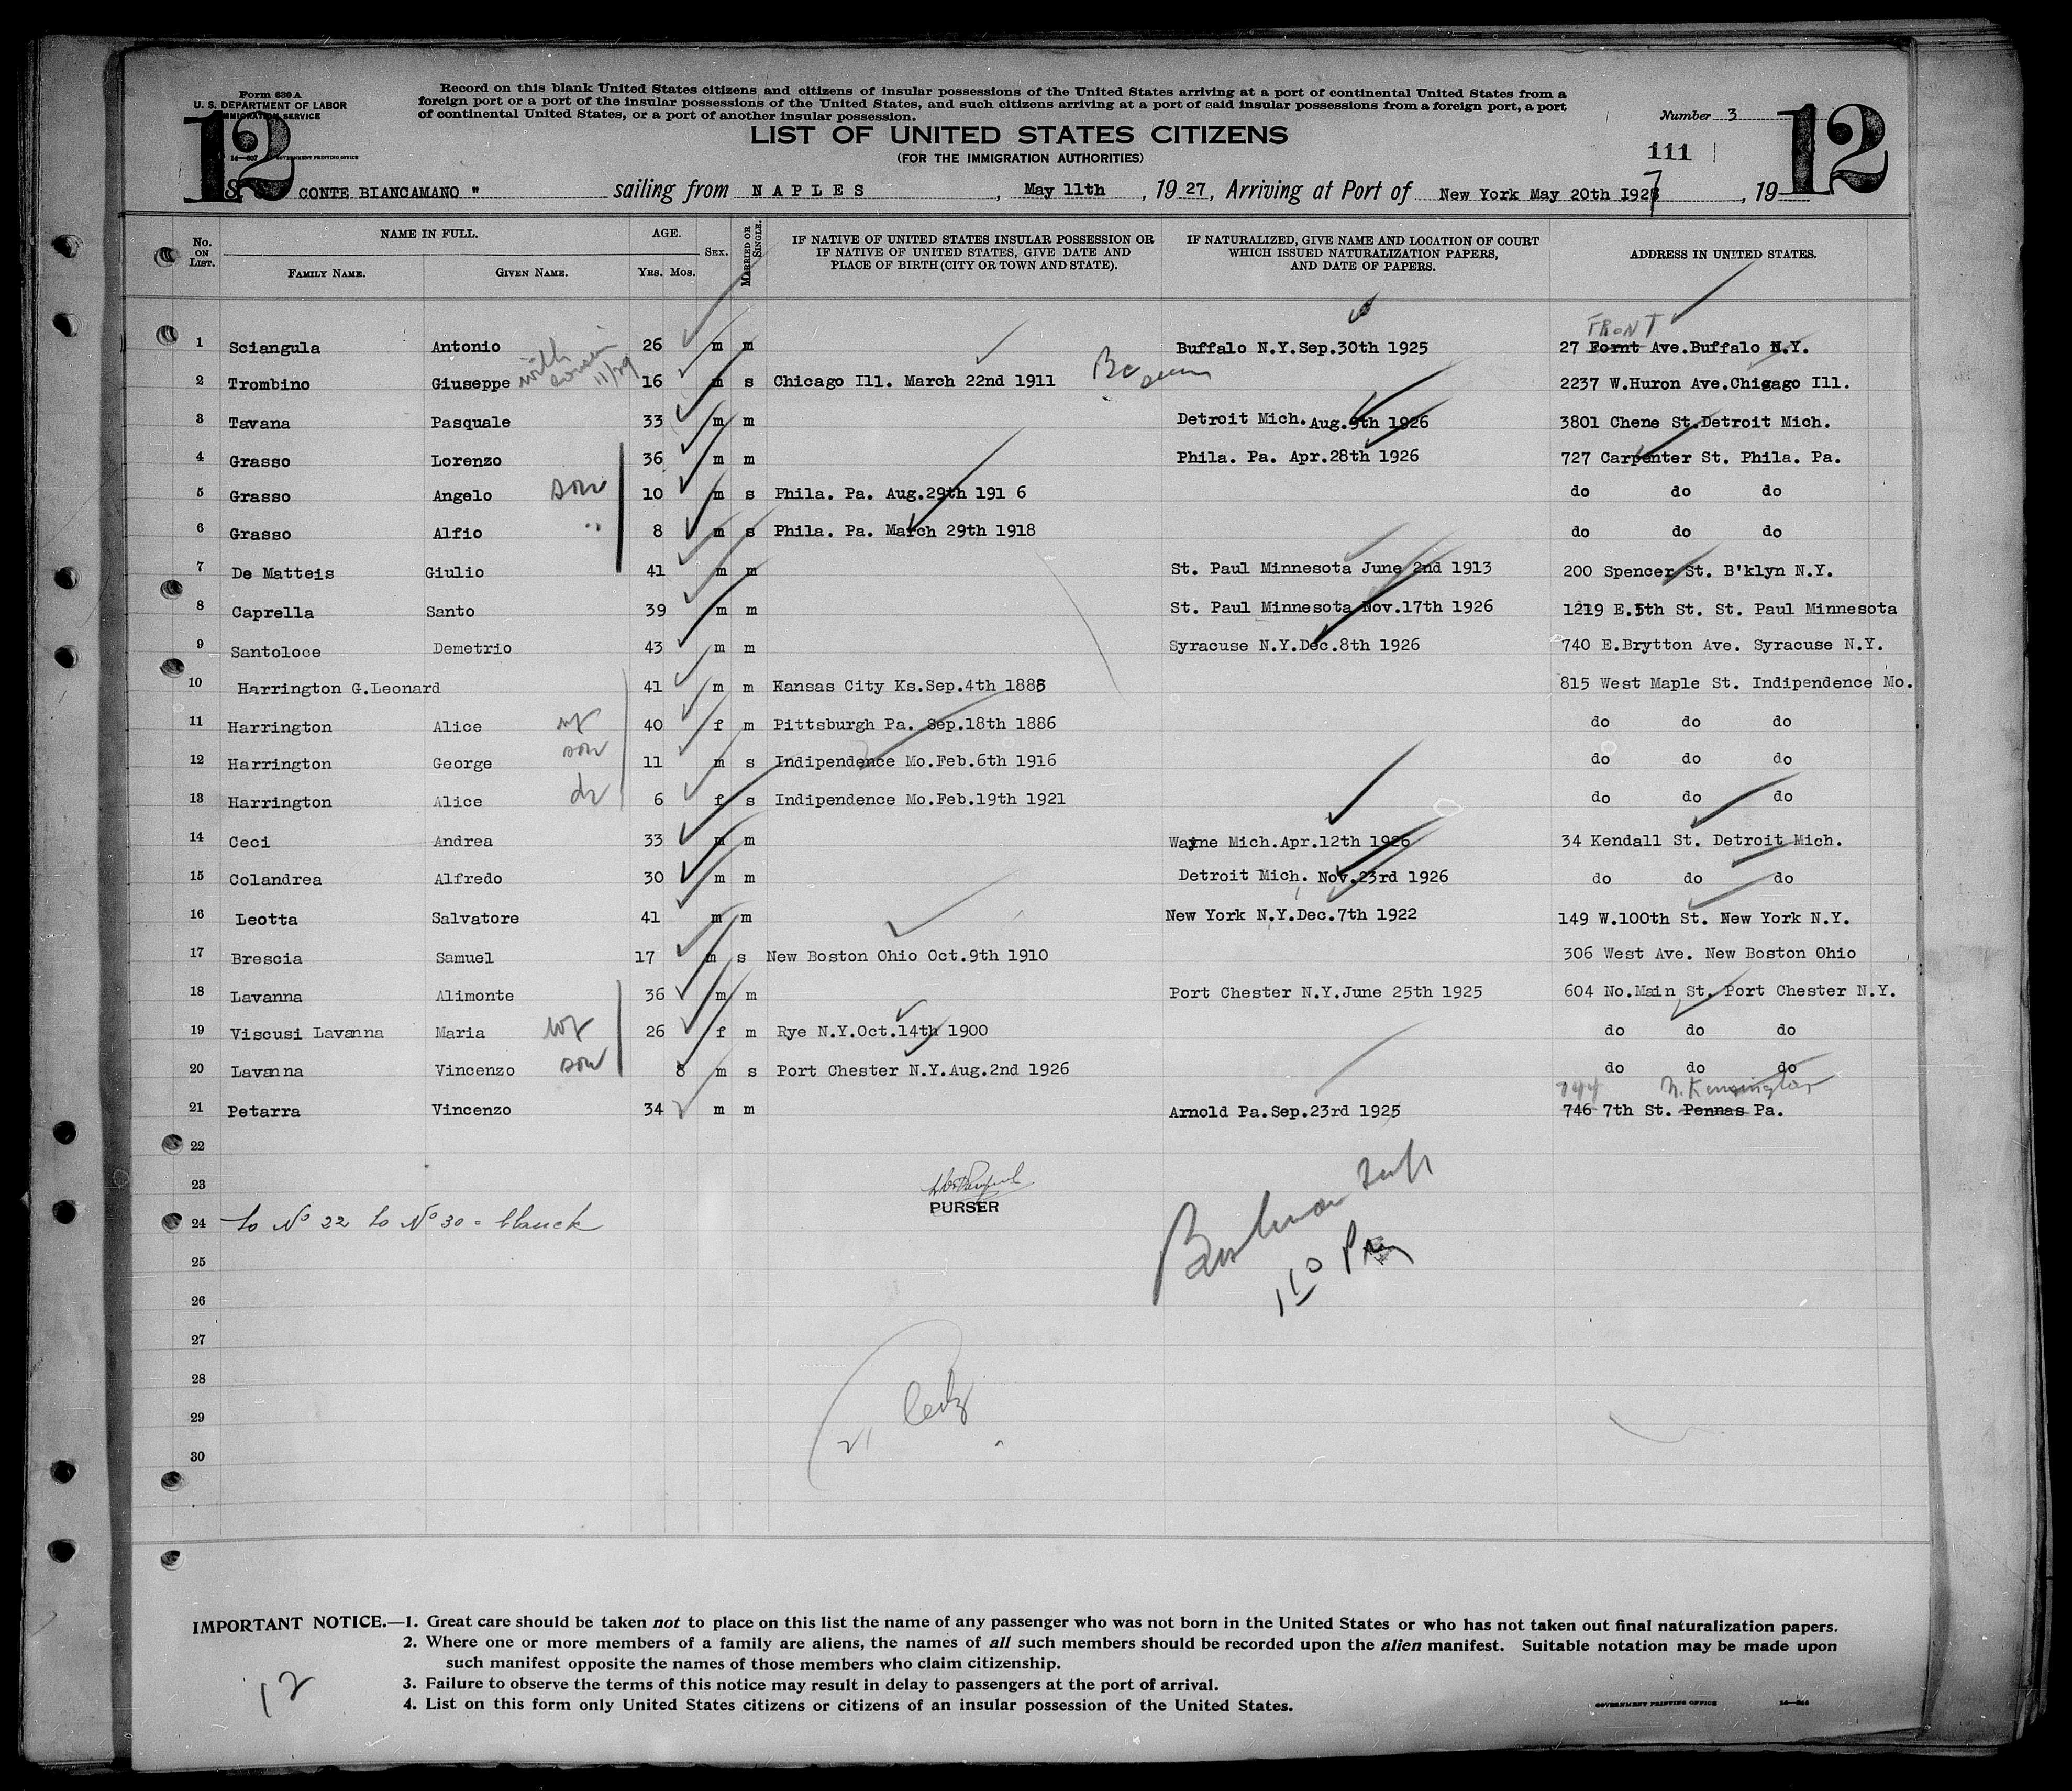 Form 630 A
U. S. DEPARTMENT OF LABOR
IMMIGRATION SERVICE
14—607 GOVERNMENT PRINTING OFFICE
Record on this blank United States citizens and citizens of insular possessions of the United States arriving at a port of continental United States from a
foreign port or a port of the insular possessions of the United States, and such citizens arriving at a port of said insular possessions from a foreign port, a port
of continental United States, or a port of another insular possession.
Number 3
12
12
LIST OF UNITED STATES CITIZENS
(FOR THE IMMIGRATION AUTHORITIES)
111
CONTE BIANCAMANO " sailing from NAPLES, May 11th, 19 27, Arriving at Port of New York May 20th 1927, 19
No. ON LIST. NAME IN FULL. AGE. SEX. MARRIED OR SINGLE. IF NATIVE OF UNITED STATES INSULAR POSSESSION OR IF NATIVE OF UNITED STATES, GIVE DATE AND PLACE OF BIRTH (CITY OR TOWN AND STATE). IF NATURALIZED, GIVE NAME AND LOCATION OF COURT WHICH ISSUED NATURALIZATION PAPERS, AND DATE OF PAPERS. ADDRESS IN UNITED STATES.
FAMILY NAME. GIVEN NAME. YRS. MOS.
FRONT
1 Sciangula Antonio 26 m m Buffalo N.Y.Sep.30th 1925 27 Fornt Ave.Buffalo N.Y.
with cousin 11/29
2 Trombino Giuseppe 16 m s Chicago Ill. March 22nd 1911 2237 W.Huron Ave.Chicago Ill.
3 Tavana Pasquale 33 m m Detroit Mich. Aug.9th 1926 3801 Chene St.Detroit Mich.
4 Grasso Lorenzo 36 m m Phila. Pa. Apr.28th 1926 727 Carpenter St. Phila. Pa.
5 Grasso Angelo son 10 m s Phila. Pa. Aug.29th 191 6 do do do
6 Grasso Alfio " 8 m s Phila. Pa. March 29th 1918 do do do
7 De Matteis Giulio 41 m m St. Paul Minnesota June 2nd 1913 200 Spencer St. B'klyn N.Y.
8 Caprella Santo 39 m m St. Paul Minnesota Nov.17th 1926 1219 E.5th St. St. Paul Minnesota
9 Santoloce Demetrio 43 m m Syracuse N.Y.Dec.8th 1926 740 E.Brytton Ave. Syracuse N.Y.
10 Harrington G.Leonard 41 m m Kansas City Ks.Sep.4th 1885 815 West Maple St. Indipendence Mo.
11 Harrington Alice wf 40 f m Pittsburgh Pa. Sep.18th 1886 do do do
12 Harrington George son 11 m s Indipendence Mo.Feb.6th 1916 do do do
13 Harrington Alice dr 6 f s Indipendence Mo.Feb.19th 1921 do do do
14 Ceci Andrea 33 m m Wayne Mich.Apr.12th 1926 34 Kendall St. Detroit Mich.
15 Colandrea Alfredo 30 m m Detroit Mich. Nov.23rd 1926 do do do
16 Leotta Salvatore 41 m m New York N.Y.Dec.7th 1922 149 W.100th St. New York N.Y.
17 Brescia Samuel 17 m s New Boston Ohio Oct.9th 1910 306 West Ave. New Boston Ohio
18 Lavanna Alimonte 36 m m Port Chester N.Y.June 25th 1925 604 No.Main St. Port Chester N.Y.
19 Viscusi Lavanna Maria wf 26 f m Rye N.Y.Oct.14th 1900 do do do
20 Lavanna Vincenzo son 8 m s Port Chester N.Y.Aug.2nd 1926 do do do
744 N. Kensington
21 Petarra Vincenzo 34 m m Arnold Pa.Sep.23rd 1925 746 7th St. Pennas Pa.
22
23
PURSER
24 to No 22 to No 30 = blanck
25
26
27
28
29
30
IMPORTANT NOTICE.—1. Great care should be taken not to place on this list the name of any passenger who was not born in the United States or who has not taken out final naturalization papers.
2. Where one or more members of a family are aliens, the names of all such members should be recorded upon the alien manifest. Suitable notation may be made upon
such manifest opposite the names of those members who claim citizenship.
3. Failure to observe the terms of this notice may result in delay to passengers at the port of arrival.
4. List on this form only United States citizens or citizens of an insular possession of the United States.
GOVERNMENT PRINTING OFFICE
12